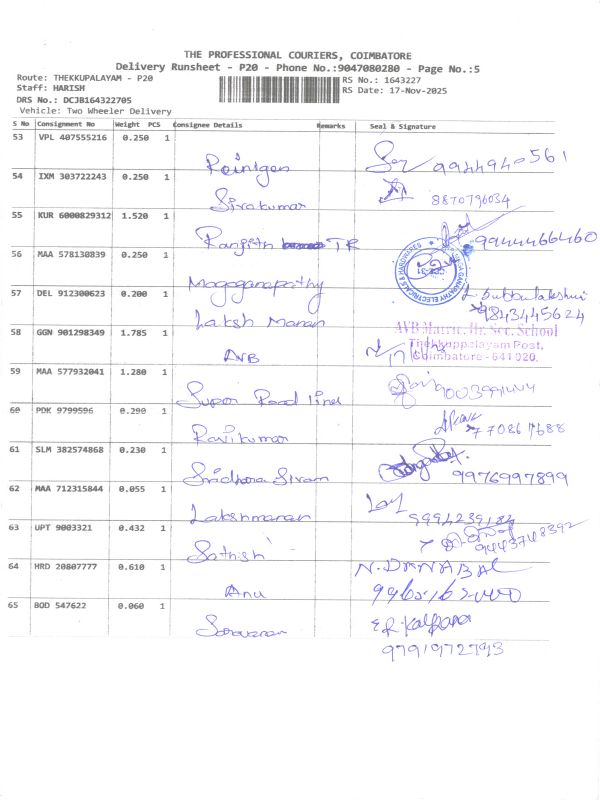 THE PROFESSIONAL COURIERS, COIMBATORE
Delivery Runsheet - P20 - Phone No.:9047080280 - Page No.:5
Route: THEKKUPALAYAM - P20
RS No.: 1643227
Staff: HARISH
RS Date: 17-Nov-2025
DRS No.: DCJB164322705
Vehicle: Two Wheeler Delivery
S No Consignment No Weight PCS Consignee Details Remarks Seal & Signature
53 VPL 407555216 0.250 1
9944940561
54 IXM 303722243 0.250 1
Sivakumar 8870796034
55 KUR 6000829312 1.520 1
Ranjith TR 9944466460
56 MAA 578130839 0.250 1
57 DEL 912300623 0.200 1
L. Subbulakshmi
Laksh Manan 9843445624
58 GGN 901298349 1.785 1
AVB Matric. Hr. Sec. School
Thekkupalayam Post,
AVB Coimbatore - 641 020.
59 MAA 577932041 1.280 1
Super Road lines
60 PDK 9799596 0.290 1
Ravikumar 770867688
61 SLM 382574868 0.230 1
9976997899
62 MAA 712315844 0.055 1
Lakshmanan 9994239184
63 UPT 9003321 0.432 1
Sathish 9443748392
64 HRD 20807777 0.610 1
N. DANABAL
Anu
65 BOD 547622 0.060 1
Saravanan E.R. Kalpana
9791972793